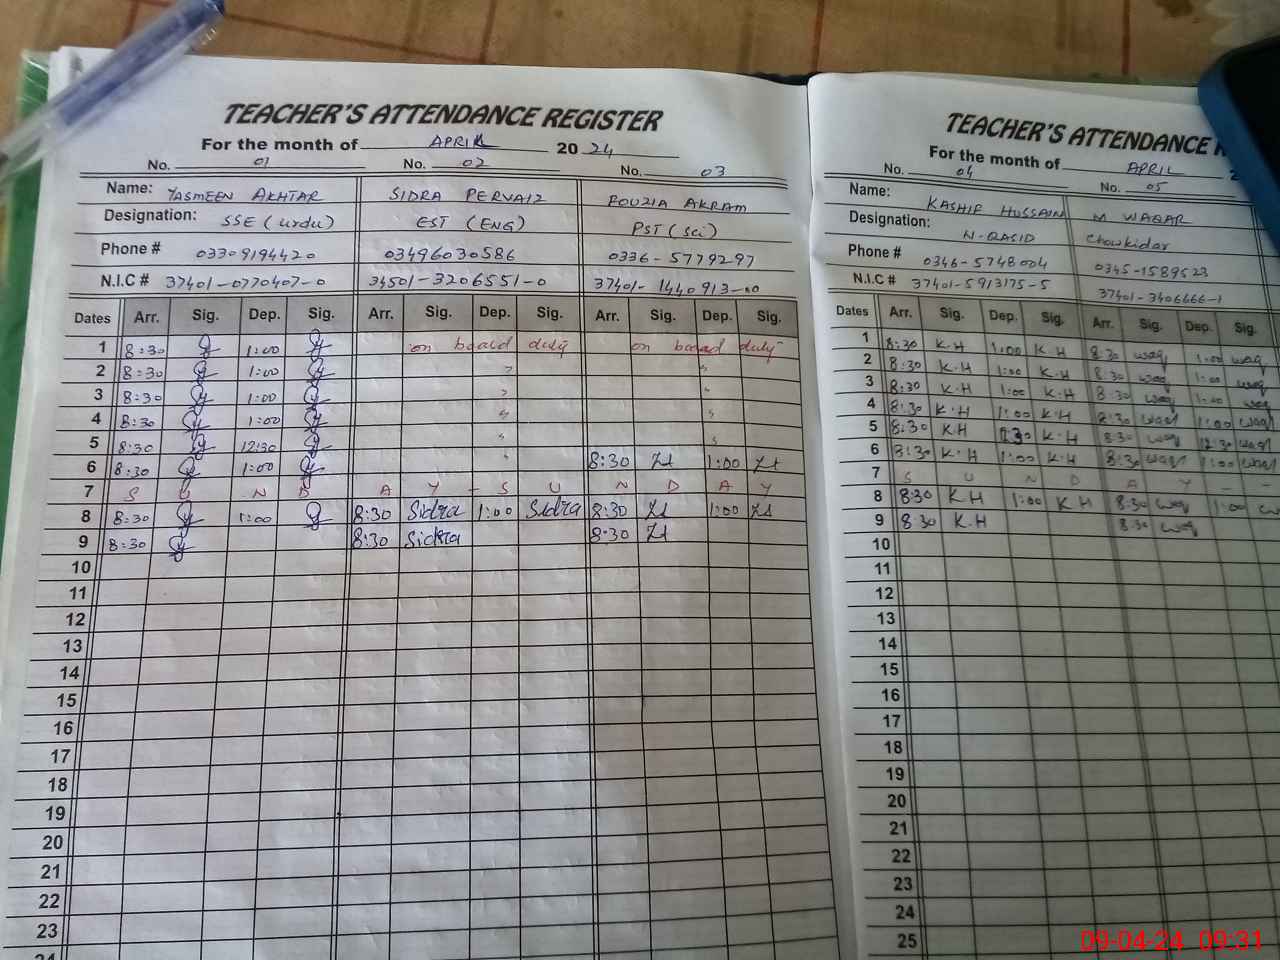 TEACHER'S ATTENDANCE REGISTER
For the month of APRIL 20 24
No. 01 No. 02 No. 03
Name: YASMEEN AKHTAR SIDRA PERVAIZ FOUZIA AKRAM
Designation: SSE (urdu) EST (ENG) PST (Sci)
Phone # 03309194420 03496030586 0336-5779297
N.I.C # 37401-0770407-0 34501-3206551-0 37401-1440913-00
Dates Arr. Sig. Dep. Sig. Arr. Sig. Dep. Sig. Arr. Sig. Dep. Sig.
1 8:30 1:00 on board duty on board duty
2 8:30 1:00 " "
3 8:30 1:00 " "
4 8:30 1:00 " "
5 8:30 12:30 " "
6 8:30 1:00 " 8:30 1:00
7 S U N D A Y - S U N D A Y
8 8:30 1:00 8:30 Sidra 1:00 Sidra 8:30 1:00
9 8:30 8:30 Sidra 8:30
10
11
12
13
14
15
16
17
18
19
20
21
22
23
24
TEACHER'S ATTENDANCE R
For the month of APRIL 2
No. 04 No. 05
Name: KASHIF HUSSAIN M WAQAR
Designation: N-QASID Chowkidar
Phone # 0346-5748004 0345-1589523
N.I.C # 37401-5913175-5 37401-3406666-1
Dates Arr. Sig. Dep. Sig. Arr. Sig. Dep. Sig.
1 8:30 K.H 1:00 K.H 8:30 waq 1:00 waq
2 8:30 K.H 1:00 K.H 8:30 waq 1:00 waq
3 8:30 K.H 1:00 K.H 8:30 waq 1:00 waq
4 8:30 K.H 1:00 K.H 8:30 waq 1:00 waq
5 8:30 K.H 12:30 K.H 8:30 waq 12:30 waq
6 8:30 K.H 1:00 K.H 8:30 waq 1:00 waq
7 S U N D A Y - -
8 8:30 KH 1:00 KH 8:30 waq 1:00
9 8:30 K.H 8:30 waq
10
11
12
13
14
15
16
17
18
19
20
21
22
23
24
25
09-04-24 09:31